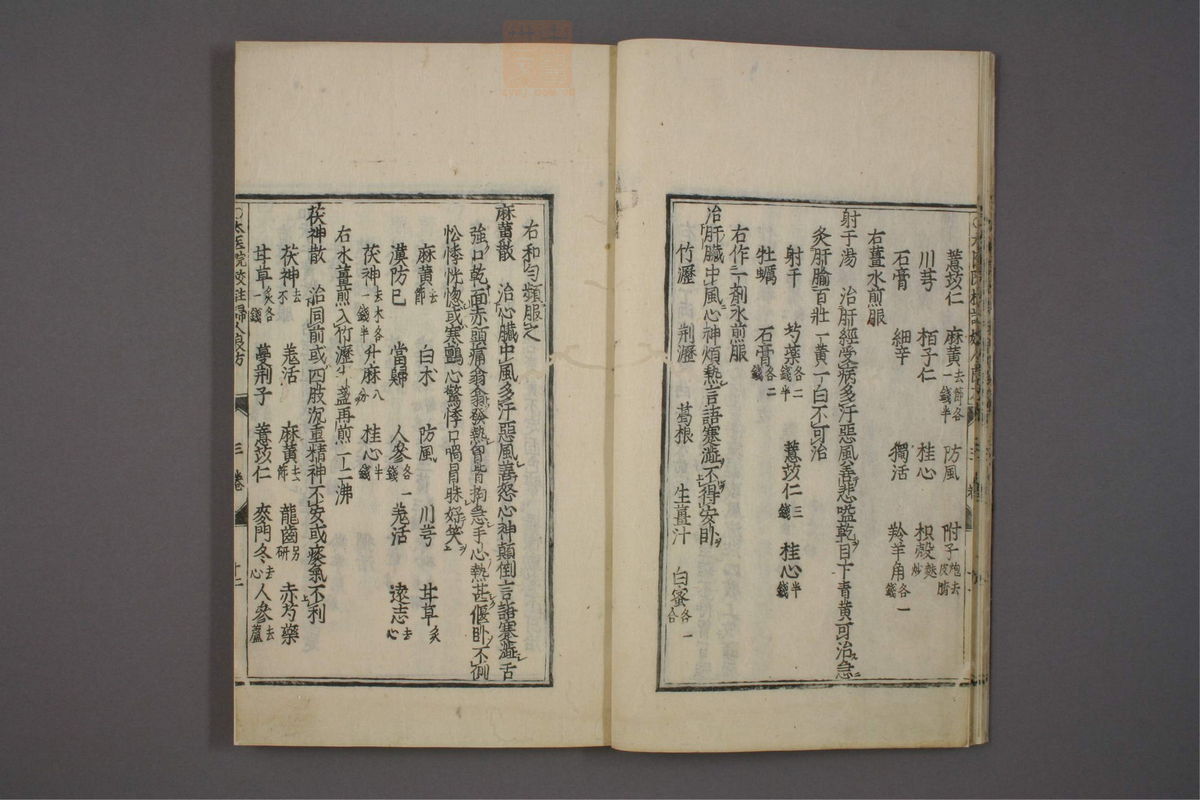 薏苡仁　麻黃去節各一錢半　防風　附子炮去皮臍
川芎　栢子仁　桂心　枳殼麩炒
石膏　細辛　獨活　羚羊角各一錢
右薑水煎服
射干湯　治肝經受病多汗惡風善悲嗌乾目下青黃可治急
灸肝腧百壯一黃一白不可治
射干　芍藥各二錢半　薏苡仁三錢　桂心半錢
牡蠣　石膏各二錢
右作二剤水煎服
治肝臟中風心神煩熱言語蹇澁不得安卧
竹瀝　荆瀝　葛根　生薑汁　白蜜各一合
右和勻頻服之
麻黃散　治心臟中風多汗惡風善怒心神顛倒言語蹇澁舌
強口乾面赤頭痛翕翕發熱胷背拘急手心熱甚偃卧不倒
忪悸恍惚或寒顫心驚悸口喎冒昧好笑
麻黃去節　白术　防風　川芎　甘草炙
漢防已　當歸　人參各一錢　羗活　遠志去心
茯神去木各一錢半　升麻八分　桂心半錢
右水薑煎入竹瀝少盞再煎一二沸
茯神散　治同前或四肢沉重精神不安或痰氣不利
茯神去　羗活　麻黃去節　龍齒另研　赤芍藥
甘草炙各一錢　蔓荆子　薏苡仁　麥門冬去心　人參去蘆
太医院校註婦人良方　三卷　十二